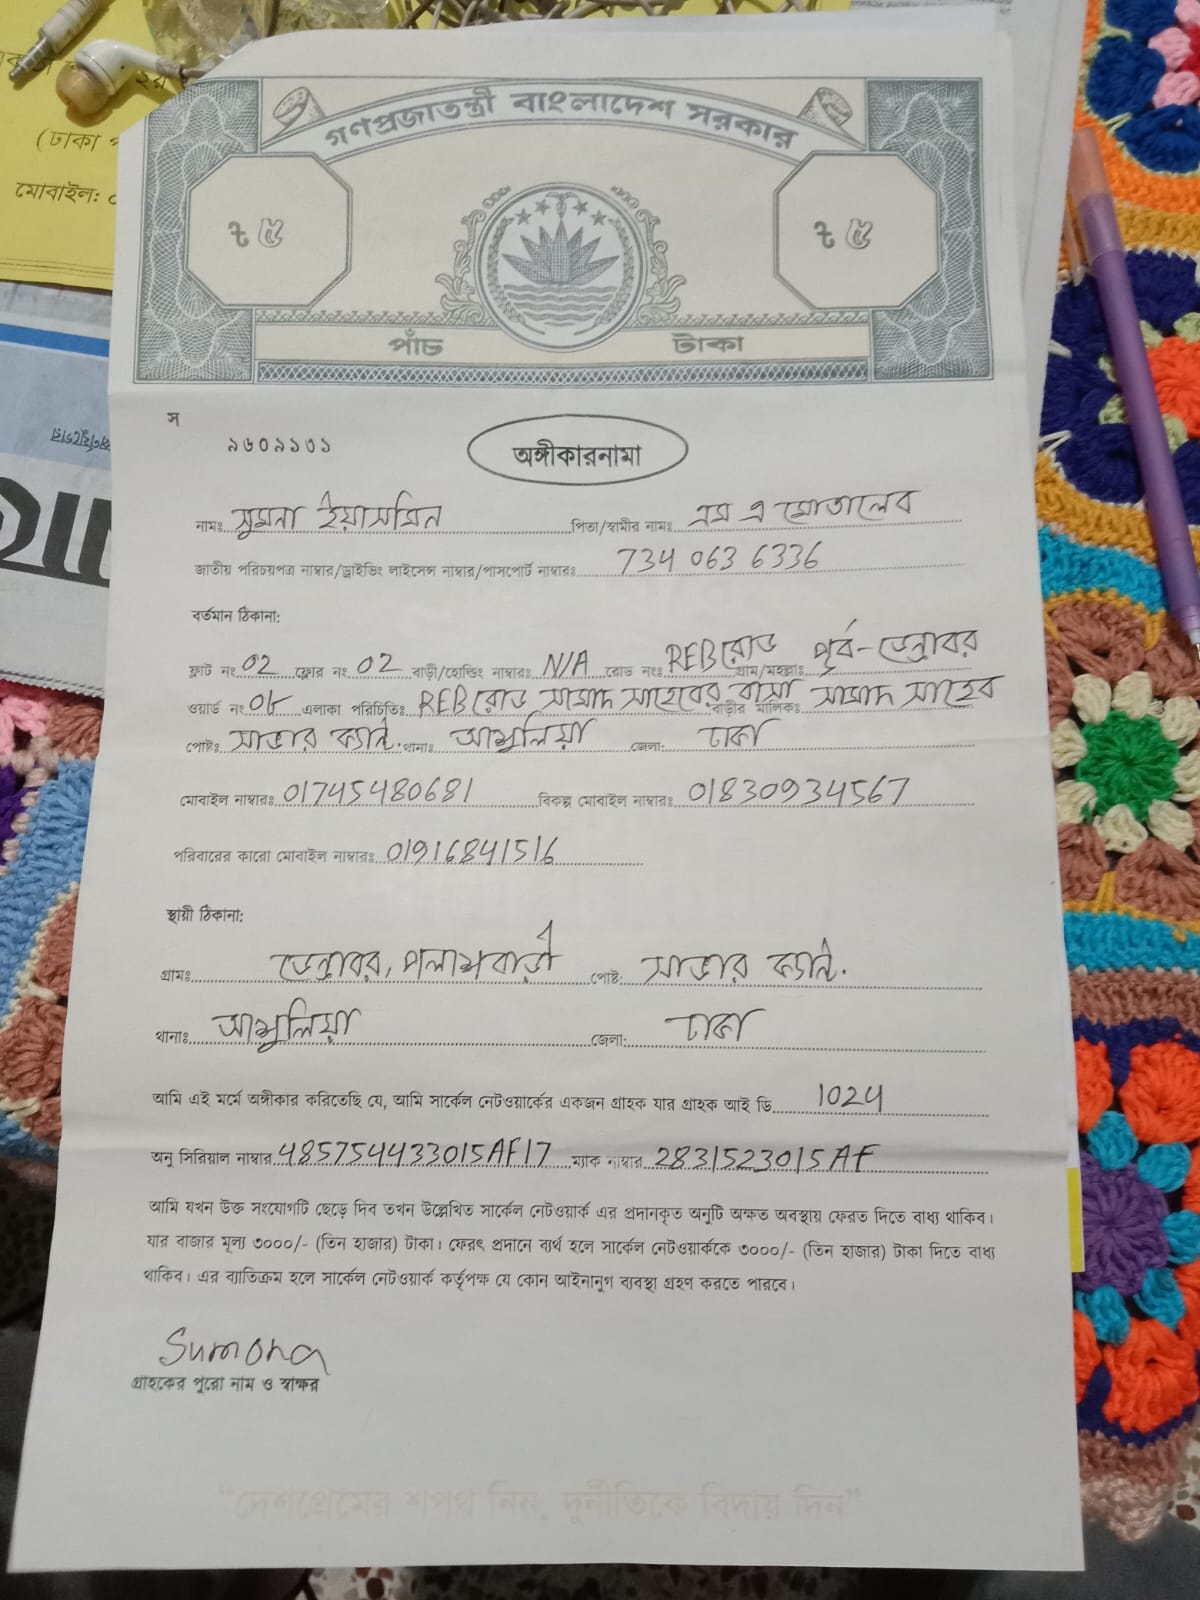 গণপ্রজাতন্ত্রী বাংলাদেশ সরকার
৳ ৫
৳ ৫
পাঁচ টাকা
স
৯৬০৯১৩১
অঙ্গীকারনামা
নামঃ সুমনা ইয়াসমিন পিতা/স্বামীর নামঃ এম এ মোতালেব
জাতীয় পরিচয়পত্র নাম্বার/ড্রাইভিং লাইসেন্স নাম্বার/পাসপোর্ট নাম্বারঃ 734 063 6336
বর্তমান ঠিকানা:
ফ্লাট নং 02 ফ্লোর নং 02 বাড়ী/হোল্ডিং নাম্বারঃ N/A রোড নংঃ REB রোড গ্রাম/মহল্লাঃ পূর্ব-ডেন্ডাবর
ওয়ার্ড নং 08 এলাকা পরিচিতিঃ REB রোড সামাদ সাহেবের বাসা বাড়ীর মালিকঃ সামাদ সাহেব
পোষ্টঃ সাভার ক্যান্ট. থানাঃ আশুলিয়া জেলা: ঢাকা
মোবাইল নাম্বারঃ 01745480681 বিকল্প মোবাইল নাম্বারঃ 01830934567
পরিবারের কারো মোবাইল নাম্বারঃ 01916841516
স্থায়ী ঠিকানা:
গ্রামঃ ডেন্ডাবর, পলাশবাড়ী পোষ্ট: সাভার ক্যান্ট.
থানাঃ আশুলিয়া জেলা: ঢাকা
আমি এই মর্মে অঙ্গীকার করিতেছি যে, আমি সার্কেল নেটওয়ার্কের একজন গ্রাহক যার গ্রাহক আই ডি 1024
অনু সিরিয়াল নাম্বার 485754433015AF17 ম্যাক নাম্বার 2831523015AF
আমি যখন উক্ত সংযোগটি ছেড়ে দিব তখন উল্লেখিত সার্কেল নেটওয়ার্ক এর প্রদানকৃত অনুটি অক্ষত অবস্থায় ফেরত দিতে বাধ্য থাকিব।
যার বাজার মূল্য ৩০০০/- (তিন হাজার) টাকা। ফেরৎ প্রদানে ব্যর্থ হলে সার্কেল নেটওয়ার্ককে ৩০০০/- (তিন হাজার) টাকা দিতে বাধ্য
থাকিব। এর ব্যাতিক্রম হলে সার্কেল নেটওয়ার্ক কর্তৃপক্ষ যে কোন আইনানুগ ব্যবস্থা গ্রহণ করতে পারবে।
Sumona
গ্রাহকের পুরো নাম ও স্বাক্ষর
"দেশপ্রেমের শপথ নিন, দুর্নীতিকে বিদায় দিন"
(ঢাকা
মোবাইল: